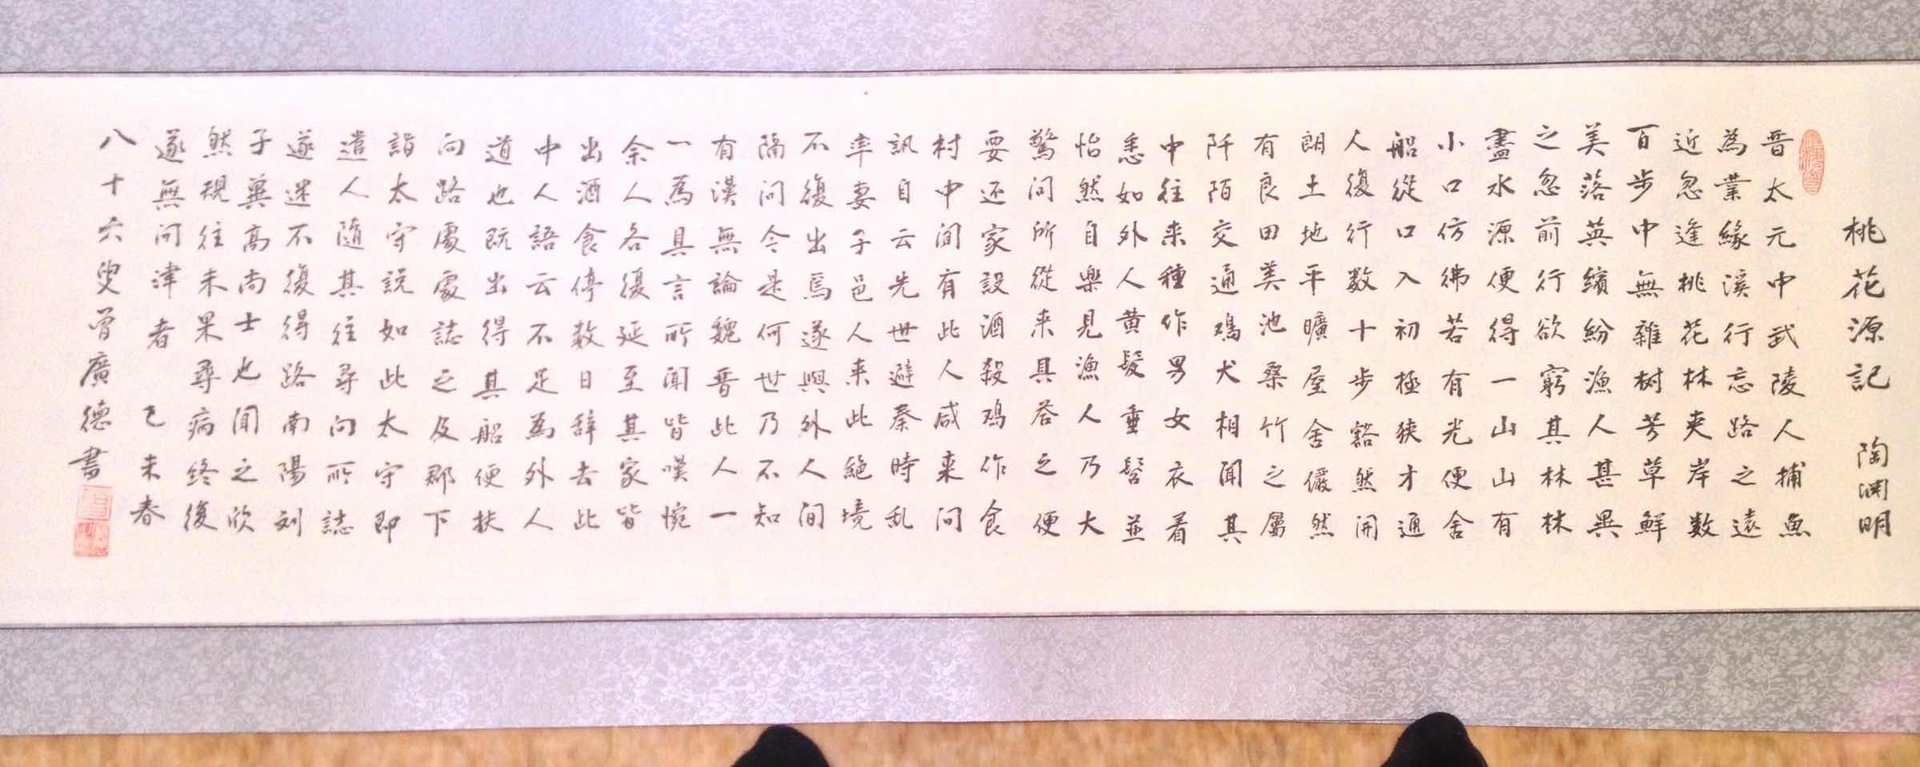 桃花源記 陶渊明
晋太元中武陵人捕魚
為業緣溪行忘路之遠
近忽逢桃花林夹岸数
百步中無雜树芳草鮮
美落英繽紛漁人甚異
之忽前行欲窮其林林
盡水源便得一山山有
小口仿彿若有光便舍
船從口入初極狭才通
人復行数十步豁然開
朗土地平曠屋舍儼然
有良田美池桑竹之屬
阡陌交通鸡犬相聞其
中往来種作男女衣着
悉如外人黄髮垂髫並
怡然自楽見漁人乃大
驚问所從来具荅之便
要还家設酒殺鸡作食
村中闻有此人咸来问
訊自云先世避秦時乱
率妻子邑人来此絶境
不復出焉遂與外人间
隔问今是何世乃不知
有漢無論魏晋此人一
一為具言所聞皆嘆惋
余人各復延至其家皆
出酒食停数日辞去此
中人語云不足為外人
道也既出得其船便扶
向路處處誌之及郡下
詣太守説如此太守即
遣人隨其往尋向所誌
遂迷不復得路南陽刘
子冀高尚士也聞之欣
然規往未果尋病终後
遂無问津者 已未春
八十六叟曾廣德書